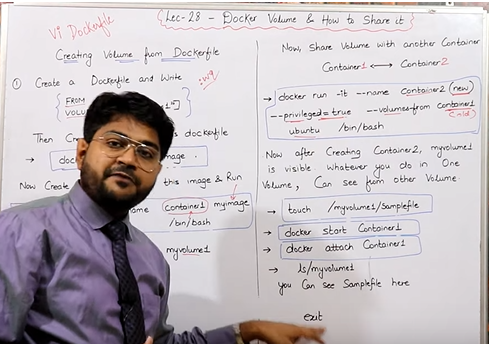 Lec-28 - Docker Volume & How to Share it
Vi Dockerfile
Creating Volume from Dockerfile
① Create a Dockerfile and Write
:wq
FROM
VOLU
Then C
is dockerfile
→ doc
mage .
Now Create
this image & Run
name container1 myimage
/bin/bash
myvolume1
Now, Share Volume with another Container
Container1 ⟷ Container2
→ docker run -it --name Container2 (new)
--privileged=true --volumes-from Container1
(old)
ubuntu /bin/bash
Now after Creating Container2, myvolume1
is visible whatever you do in One
Volume, Can see from other Volume
→ touch /myvolume1/Samplefile
→ docker start Container1
→ docker attach Container1
→ ls/myvolume1
you Can See Samplefile here
exit